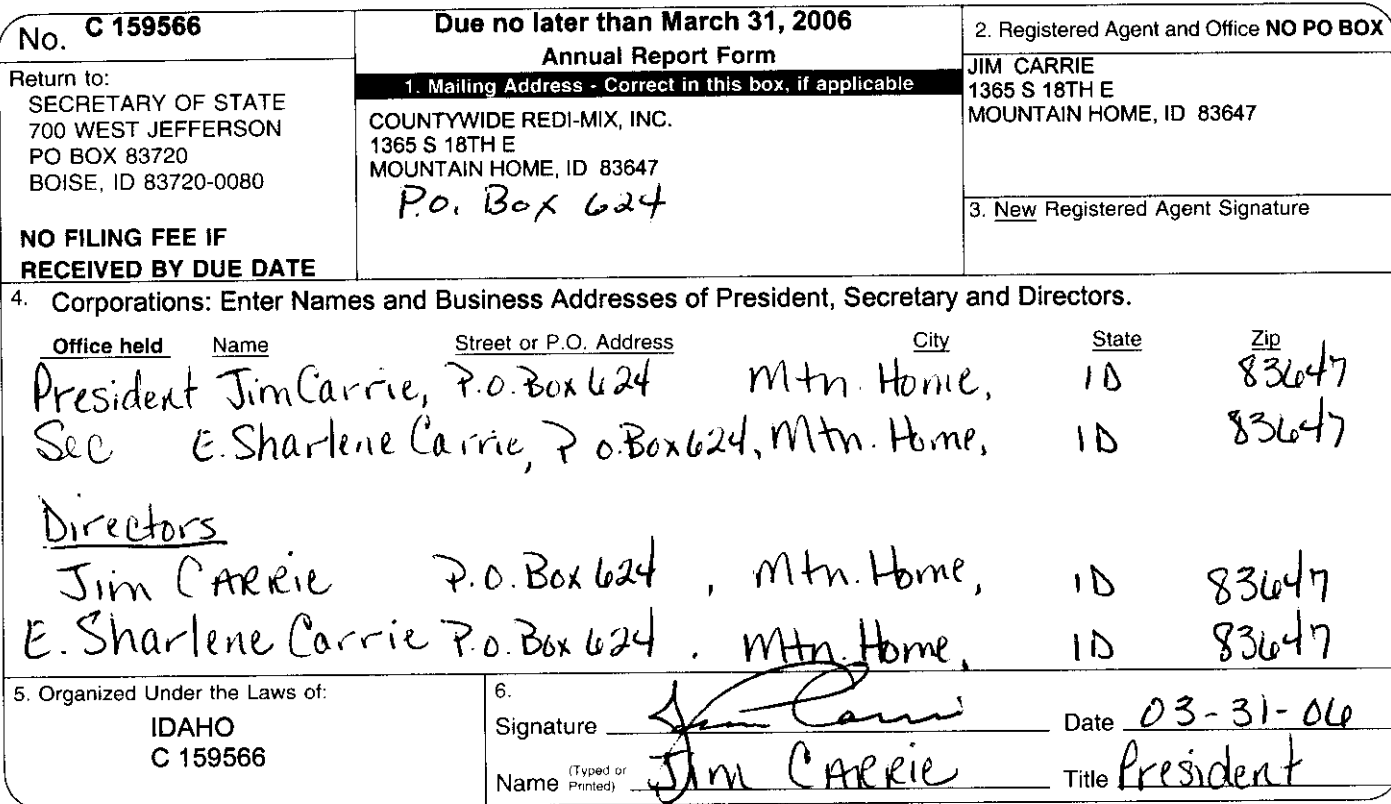 No. C 159566
Return to:
SECRETARY OF STATE
700 WEST JEFFERSON
PO BOX 83720
BOISE, ID 83720-0080
NO FILING FEE IF
RECEIVED BY DUE DATE
Due no later than March 31, 2006
Annual Report Form
1. Mailing Address - Correct in this box, if applicable
COUNTYWIDE REDI-MIX, INC.
1365 S 18TH E
MOUNTAIN HOME, ID 83647
P.O. Box 624
2. Registered Agent and Office NO PO BOX
JIM CARRIE
1365 S 18TH E
MOUNTAIN HOME, ID 83647
3. New Registered Agent Signature
4. Corporations: Enter Names and Business Addresses of President, Secretary and Directors.
Office held Name Street or P.O. Address City State Zip
President Jim Carrie, P.O. Box 624 Mtn. Home, ID 83647
Sec E. Sharlene Carrie, P.O. Box 624, Mtn. Home, ID 83647
Directors
Jim CARRIE P.O. Box 624, Mtn. Home, ID 83647
E. Sharlene Carrie P.O. Box 624. Mtn. Home, ID 83647
5. Organized Under the Laws of:
IDAHO
C 159566
6.
Signature Jim Carrie Date 03-31-06
Name (Typed or Printed) Jim CARRIE Title President